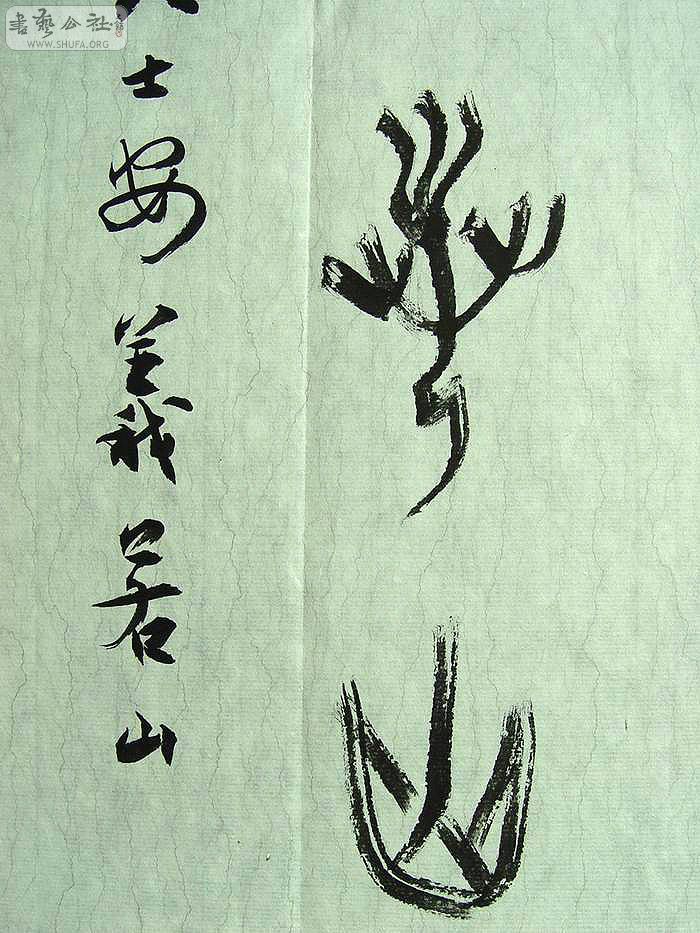 書藝公社
WWW.SHUFA.ORG
若山
士安義若山